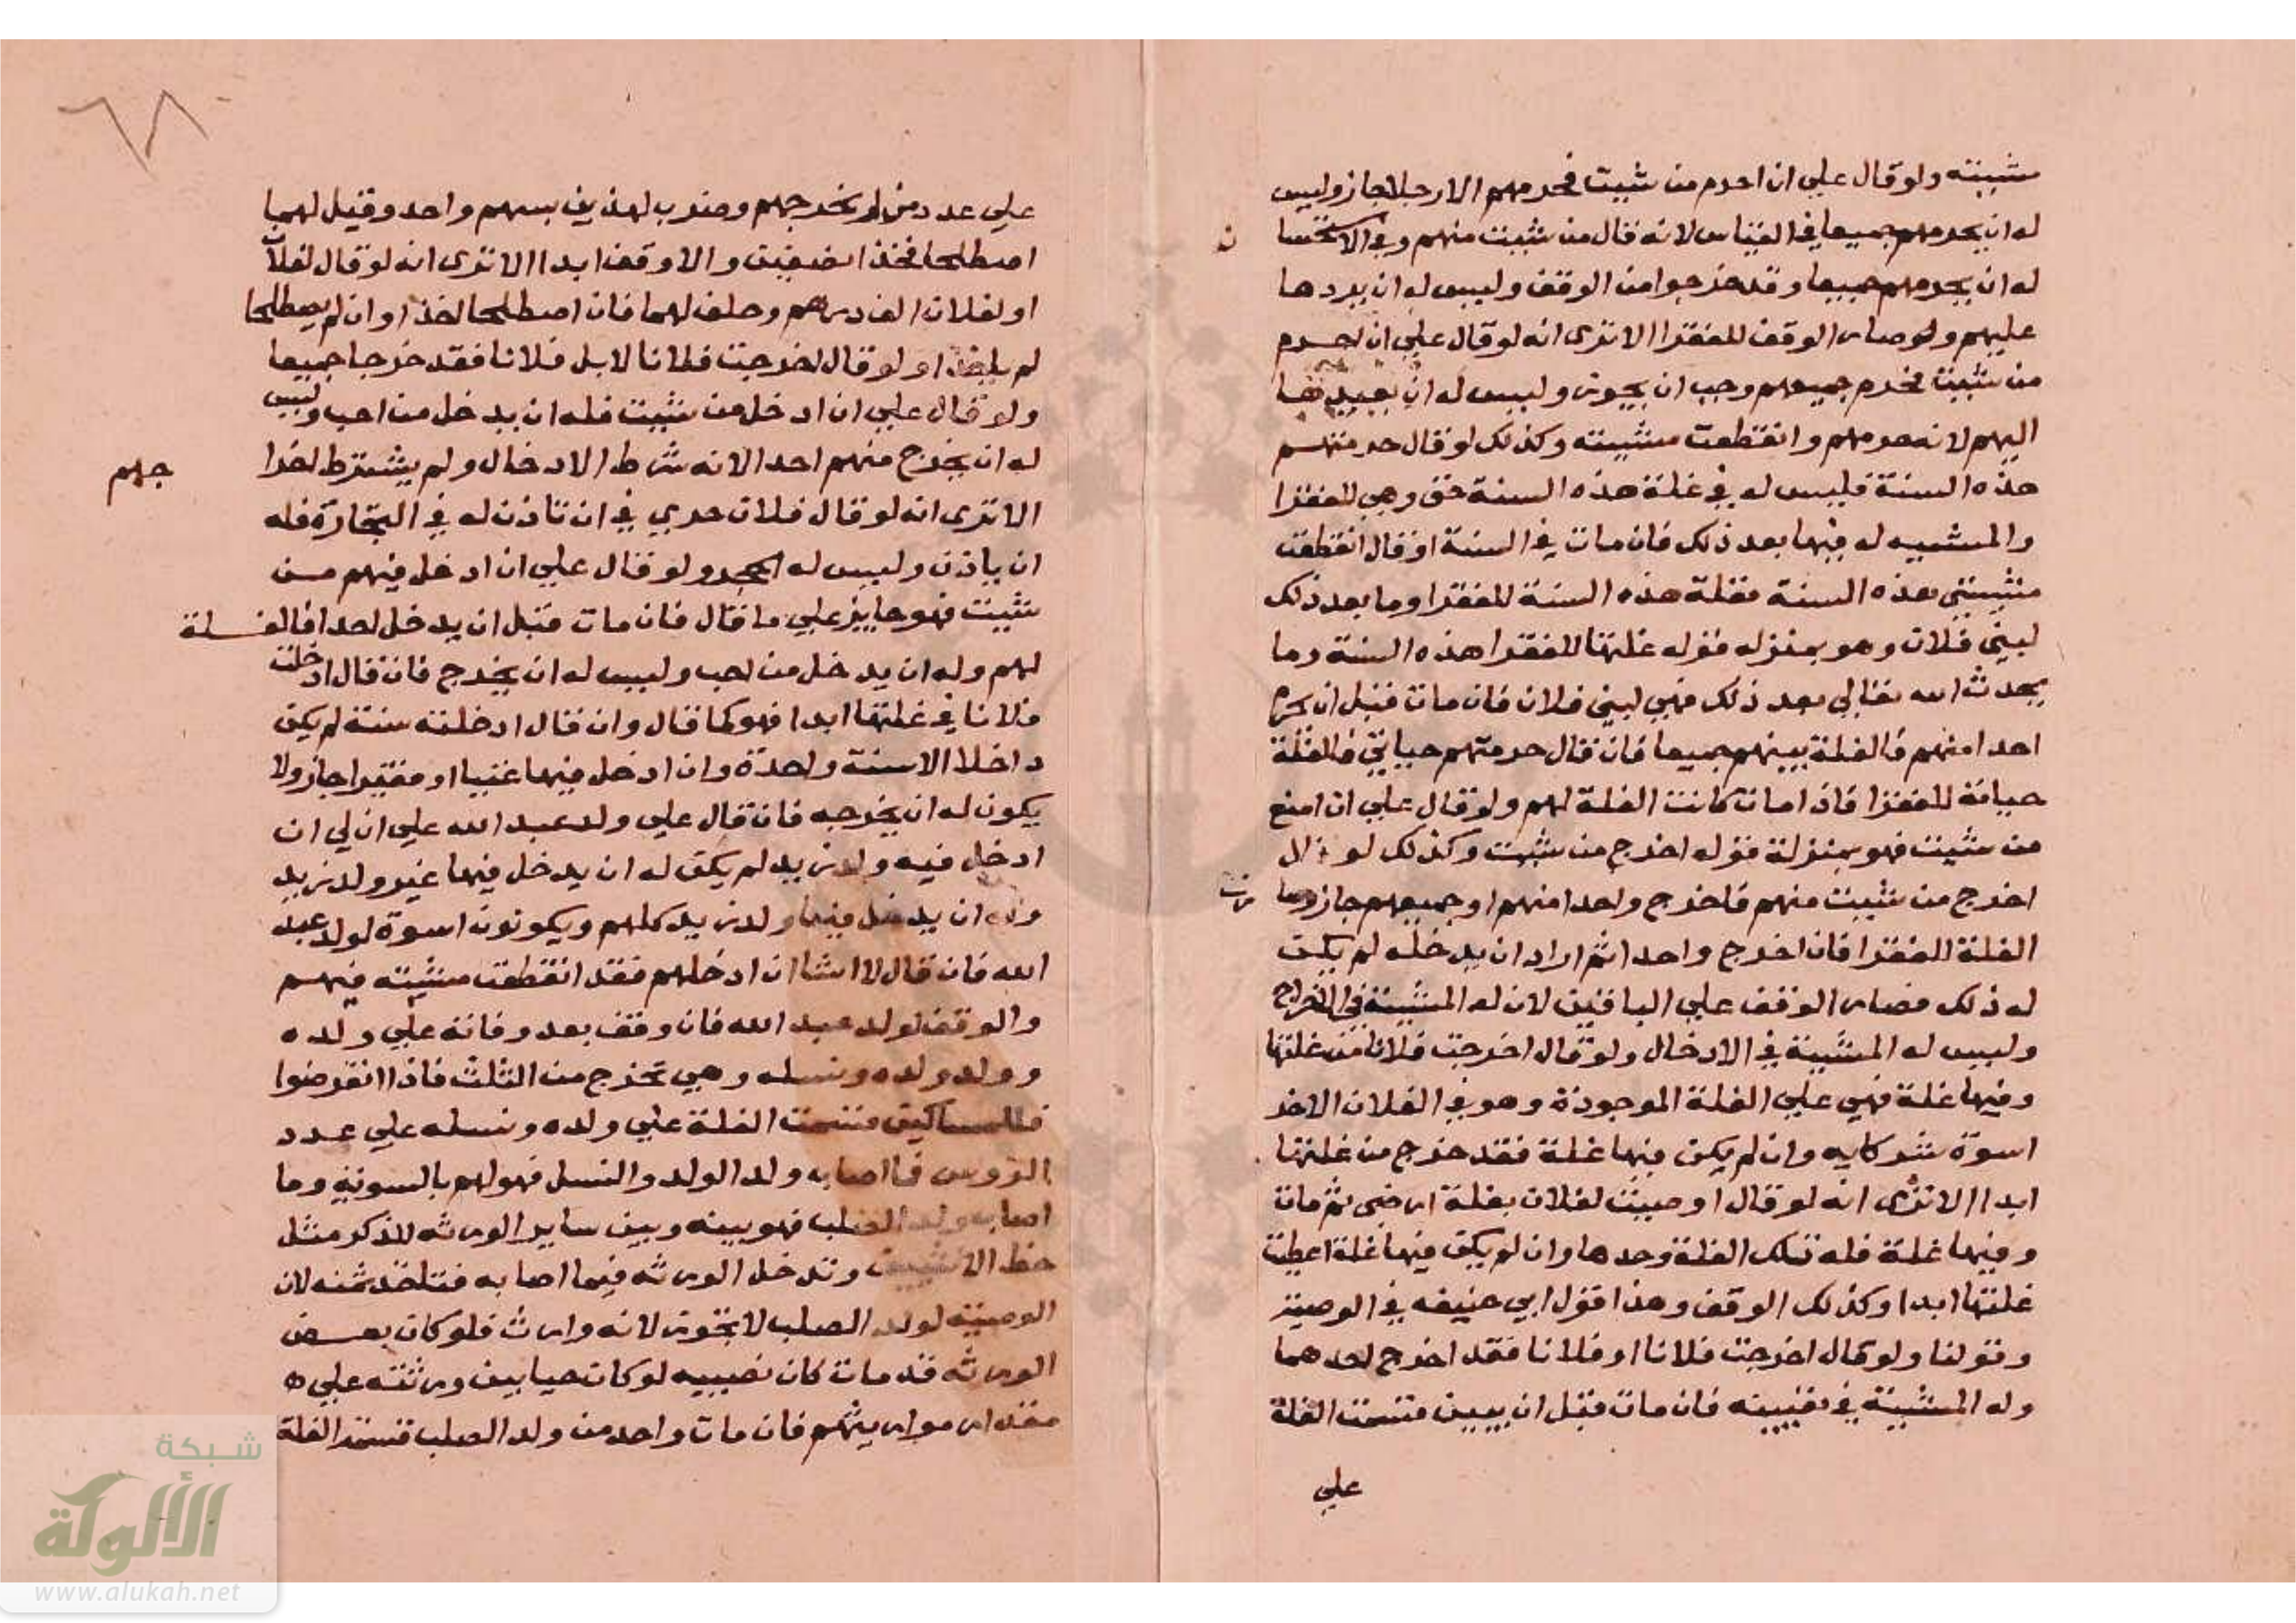 مشيته ولو قال علي ان احرم من شيت فحرمهم الا رجلا جاز وليس
له ان يحرمهم جميعا في القياس لانه قال من شيت منهم وفي الاستحسا
ن
له ان يحرمهم جميعا وقد خرجوا من الوقف وليس له ان يردها
عليهم وصار الوقف للفقرا الا ترى انه لو قال علي ان احرم
من شيت فحرم جميعهم وجب ان يجوز وليس له ان يعيدها
اليهم لانه حرمهم وانقطعت مشيته وكذلك لو قال حرمتهم
هذه السنة فليس له في غلة هذه السنة حق وهي للفقرا
والمشيه له فيها بعد ذلك فان مات في السنة او قال انقطعت
مشيتي بعذه السنة فغلة هذه السنة للفقرا وما بعد ذلك
لبني فلان وهو بمنزله قوله غلتها للفقرا هذه السنة وما
يحدث الله تعالي بعد ذلك فهي لبني فلان فان مات قبل ان يحرم
احدا منهم فالغلة بينهم جميعا فان قال حرمتهم حياتي فالغلة
حياته للفقرا فاذا مات كانت الغلة لهم ولو قال علي ان امنع
من شيت فهو بمنزلة قوله اخرج من شيت وكذلك لو قال
اخرج من شيت منهم فاخرج واحدا منهم او جميعهم جاز وصا
رت
الغلة للفقرا فان اخرج واحدا ثم اراد ان يدخله لم يكن
له ذلك فصار الوقف علي الباقين لان له المشية في الاخراج
وليس له المشية في الادخال ولو قال اخرجت فلانا من غلتها
وفيها غلة فهي علي الغلة الموجودة وهو في الغلات الاخر
اسوة شركايه وان لم يكن فيها غلة فقد خرج من غلتها
ابدا الا ترى انه لو قال اوصيت لفلان بغلة ارضي ثم مات
وفيها غلة فله تلك الغلة وحدها وان لم يكن فيها غلة اعطيت
غلتها ابدا وكذلك الوقف وهذا قول ابي حنيفه في الوصية
وقولنا ولو قال اخرجت فلانا او فلانا فقد اخرج احدهما
وله المشية في تعيينه فان مات قبل ان يبين قسمت الغلة
علي
٦٨
علي عدد من لم يخرجهم وضرب لهذين بسهم واحد وقيل لهما
اصطلحا فخذا نصفين والا وقف ابدا الا ترى انه لو قال لفلان
او لفلان الف درهم وحلف لهما فان اصطلحا اخذا وان لم يصطلحا
لم ياخذا ولو قال اخرجت فلانا لا بل فلانا فقد خرجا جميعا
ولو قال علي ان ادخل من شيت فله ان يدخل من احب وليس
له ان يخرج منهم احدا لانه شرط الادخال ولم يشترط اخرا
جهم
الا ترى انه لو قال فلان حري في ان تاذن له في التجارة فله
ان ياذن وليس له الحجر ولو قال علي ان ادخل فيهم من
شيت فهو جايز علي ما قال فان مات قبل ان يدخل احدا فالغلة
لهم وله ان يدخل من احب وليس له ان يخرج فان قال ادخلت
فلانا في غلتها ابدا فهو كما قال وان قال ادخلته سنة لم يكن
داخلا الا سنة واحدة وان ادخل فيها غنيا او فقيرا جاز ولا
يكون له ان يخرجه فان قال علي ولد عبد الله علي ان لي ان
ادخل فيه ولد زيد لم يكن له ان يدخل فيها غير ولد زيد
وله ان يدخل فيها ولد زيد كلهم ويكونون اسوة لولد عبد
الله فان قال لا اشا ان ادخلهم فقد انقطعت مشيته فيهم
والوقف لولد عبد الله فان وقف بعد وفاته علي ولده
وولد ولده ونسله وهي تخرج من الثلث فاذا انقرضوا
فللمساكين قسمت الغلة علي ولده ونسله علي عدد
الروس فما اصاب ولد الولد والنسل فهو لهم بالسوية وما
اصاب ولد الصلب فهو بينه وبين ساير الورثه للذكر مثل
حظ الانثيين وتدخل الورثه فيما اصابه فتاخذ ثمنه لان
الوصيه لولد الصلب لا تجوز لانه وارث فلو كان بعض
الورثه قد مات كان نصيبه لو كان حيا بين ورثته علي
مقدار مواريثهم فان مات واحد من ولد الصلب قسمت الغلة
شبكة
الألوكة
www.alukah.net